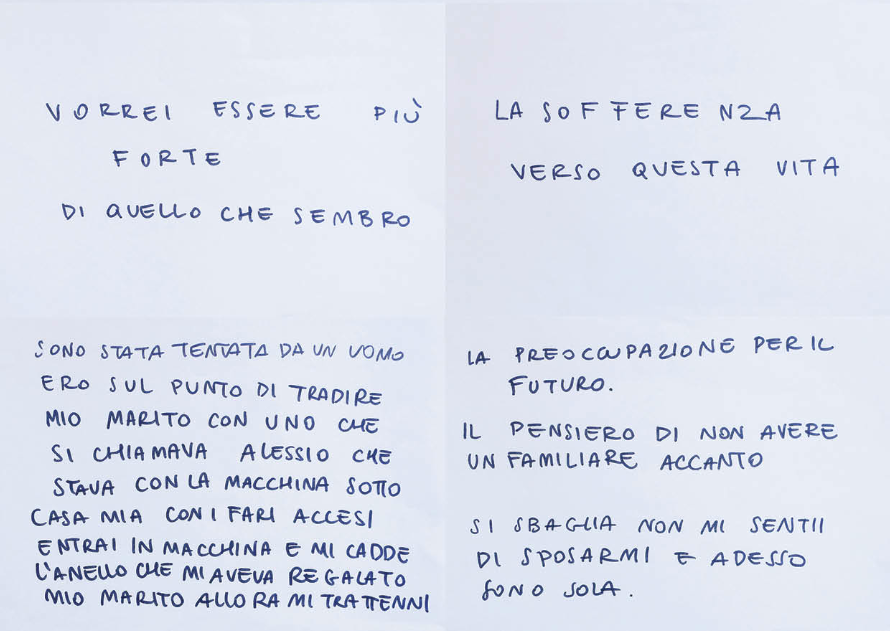 VORREI ESSERE PIÙ
FORTE
DI QUELLO CHE SEMBRO
LA SOFFERENZA
VERSO QUESTA VITA
SONO STATA TENTATA DA UN UOMO
ERO SUL PUNTO DI TRADIRE
MIO MARITO CON UNO CHE
SI CHIAMAVA ALESSIO CHE
STAVA CON LA MACCHINA SOTTO
CASA MIA CON I FARI ACCESI
ENTRAI IN MACCHINA E MI CADDE
L'ANELLO CHE MI AVEVA REGALATO
MIO MARITO ALLORA MI TRATTENNI
LA PREOCCUPAZIONE PER IL
FUTURO.
IL PENSIERO DI NON AVERE
UN FAMILIARE ACCANTO
SI SBAGLIA NON MI SENTII
DI SPOSARMI E ADESSO
SONO SOLA.